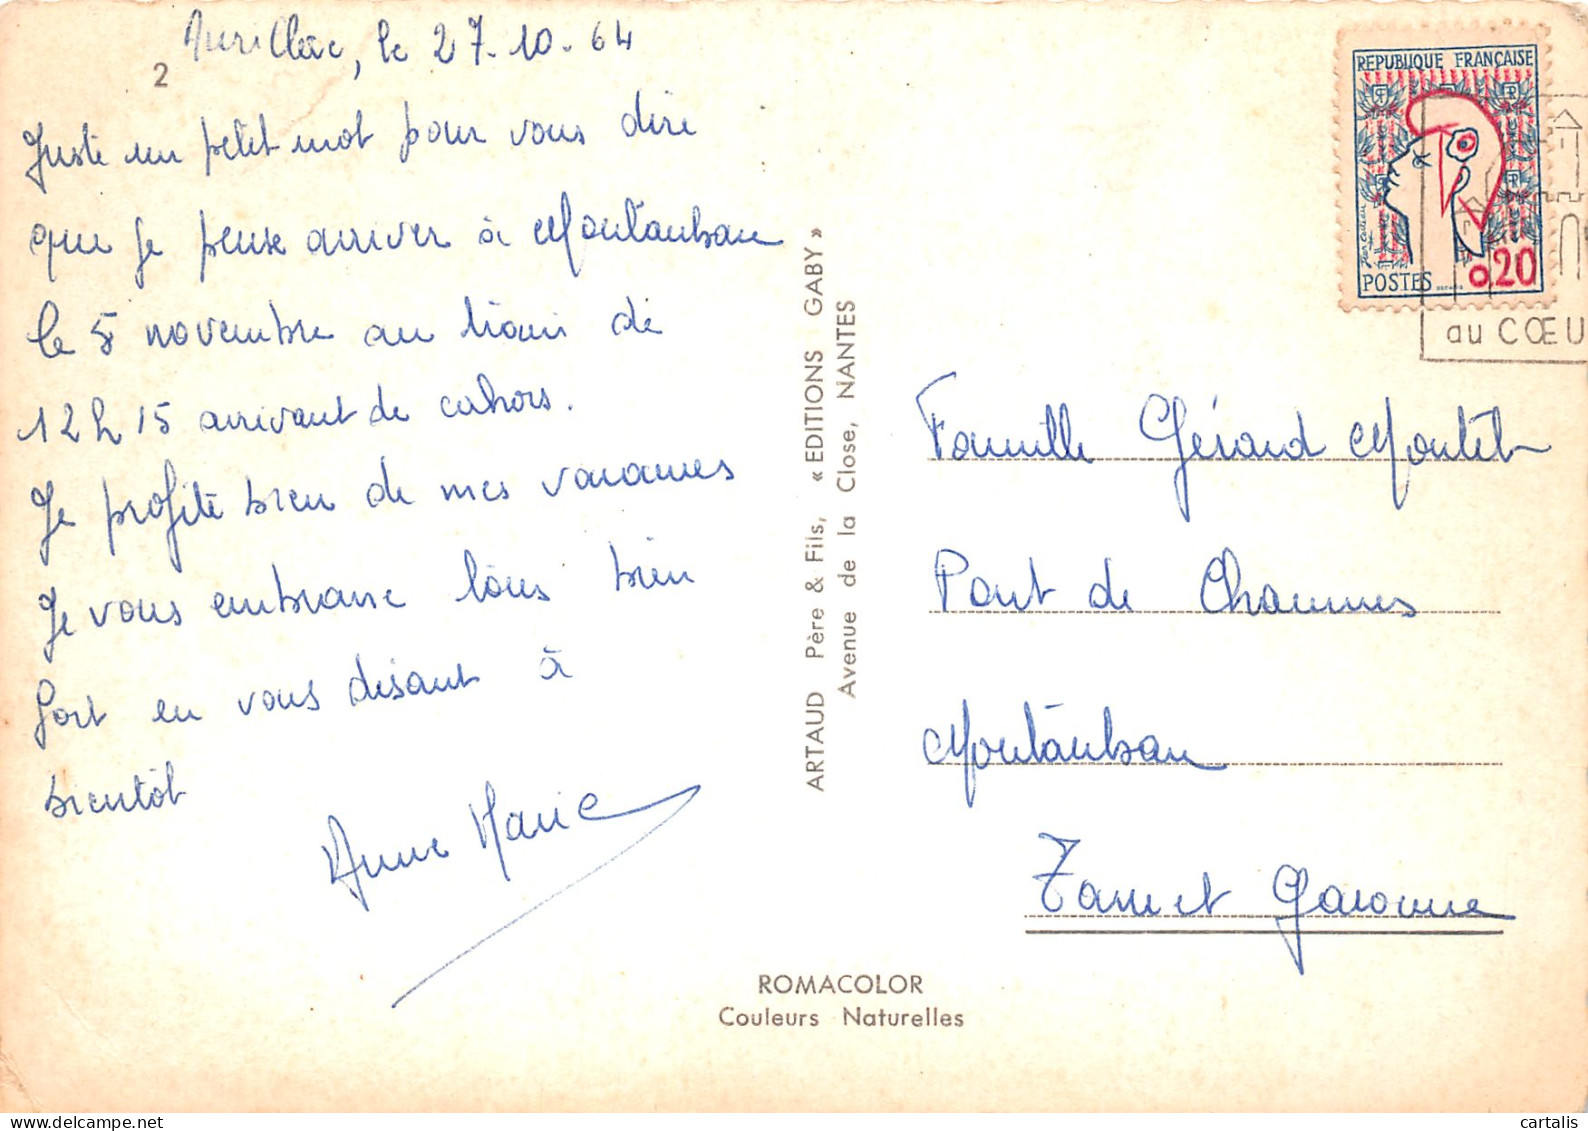 Aurillac, le 27.10.64
2
Juste un petit mot pour vous dire
que je pense arriver à Montauban
le 5 novembre au train de
12h15 arrivant de cahors.
Je profite bien de mes vacances
Je vous embrasse tous bien
fort en vous disant à
bientôt
Anne Marie
ARTAUD Père & Fils, « EDITIONS GABY »
Avenue de la Close, NANTES
REPUBLIQUE FRANÇAISE
POSTES 0.20
au CŒU
Famille Gérard Montet
Pont de Chaumes
Montauban
Tarn et Garonne
ROMACOLOR
Couleurs Naturelles
cartalis